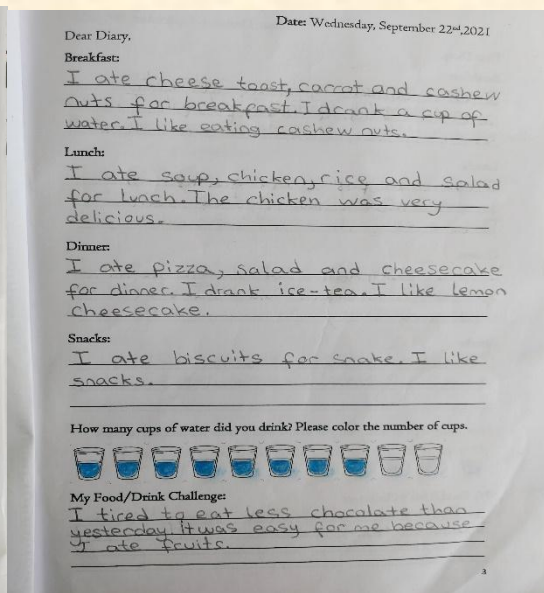 Date: Wednesday, September 22nd,2021
Dear Diary,
Breakfast:
I ate cheese toast, carrot and cashew
nuts for breakfast. I drank a cup of
water. I like eating cashew nuts.
Lunch:
I ate soup, chicken, rice and salad
for lunch. The chicken was very
delicious.
Dinner:
I ate pizza, salad and cheesecake
for dinner. I drank ice-tea. I like lemon
cheesecake.
Snacks:
I ate biscuits for snake. I like
snacks.
How many cups of water did you drink? Please color the number of cups.
My Food/Drink Challenge:
I tired to eat less chocolate than
yesterday. It was easy for me because
I ate fruits.
3